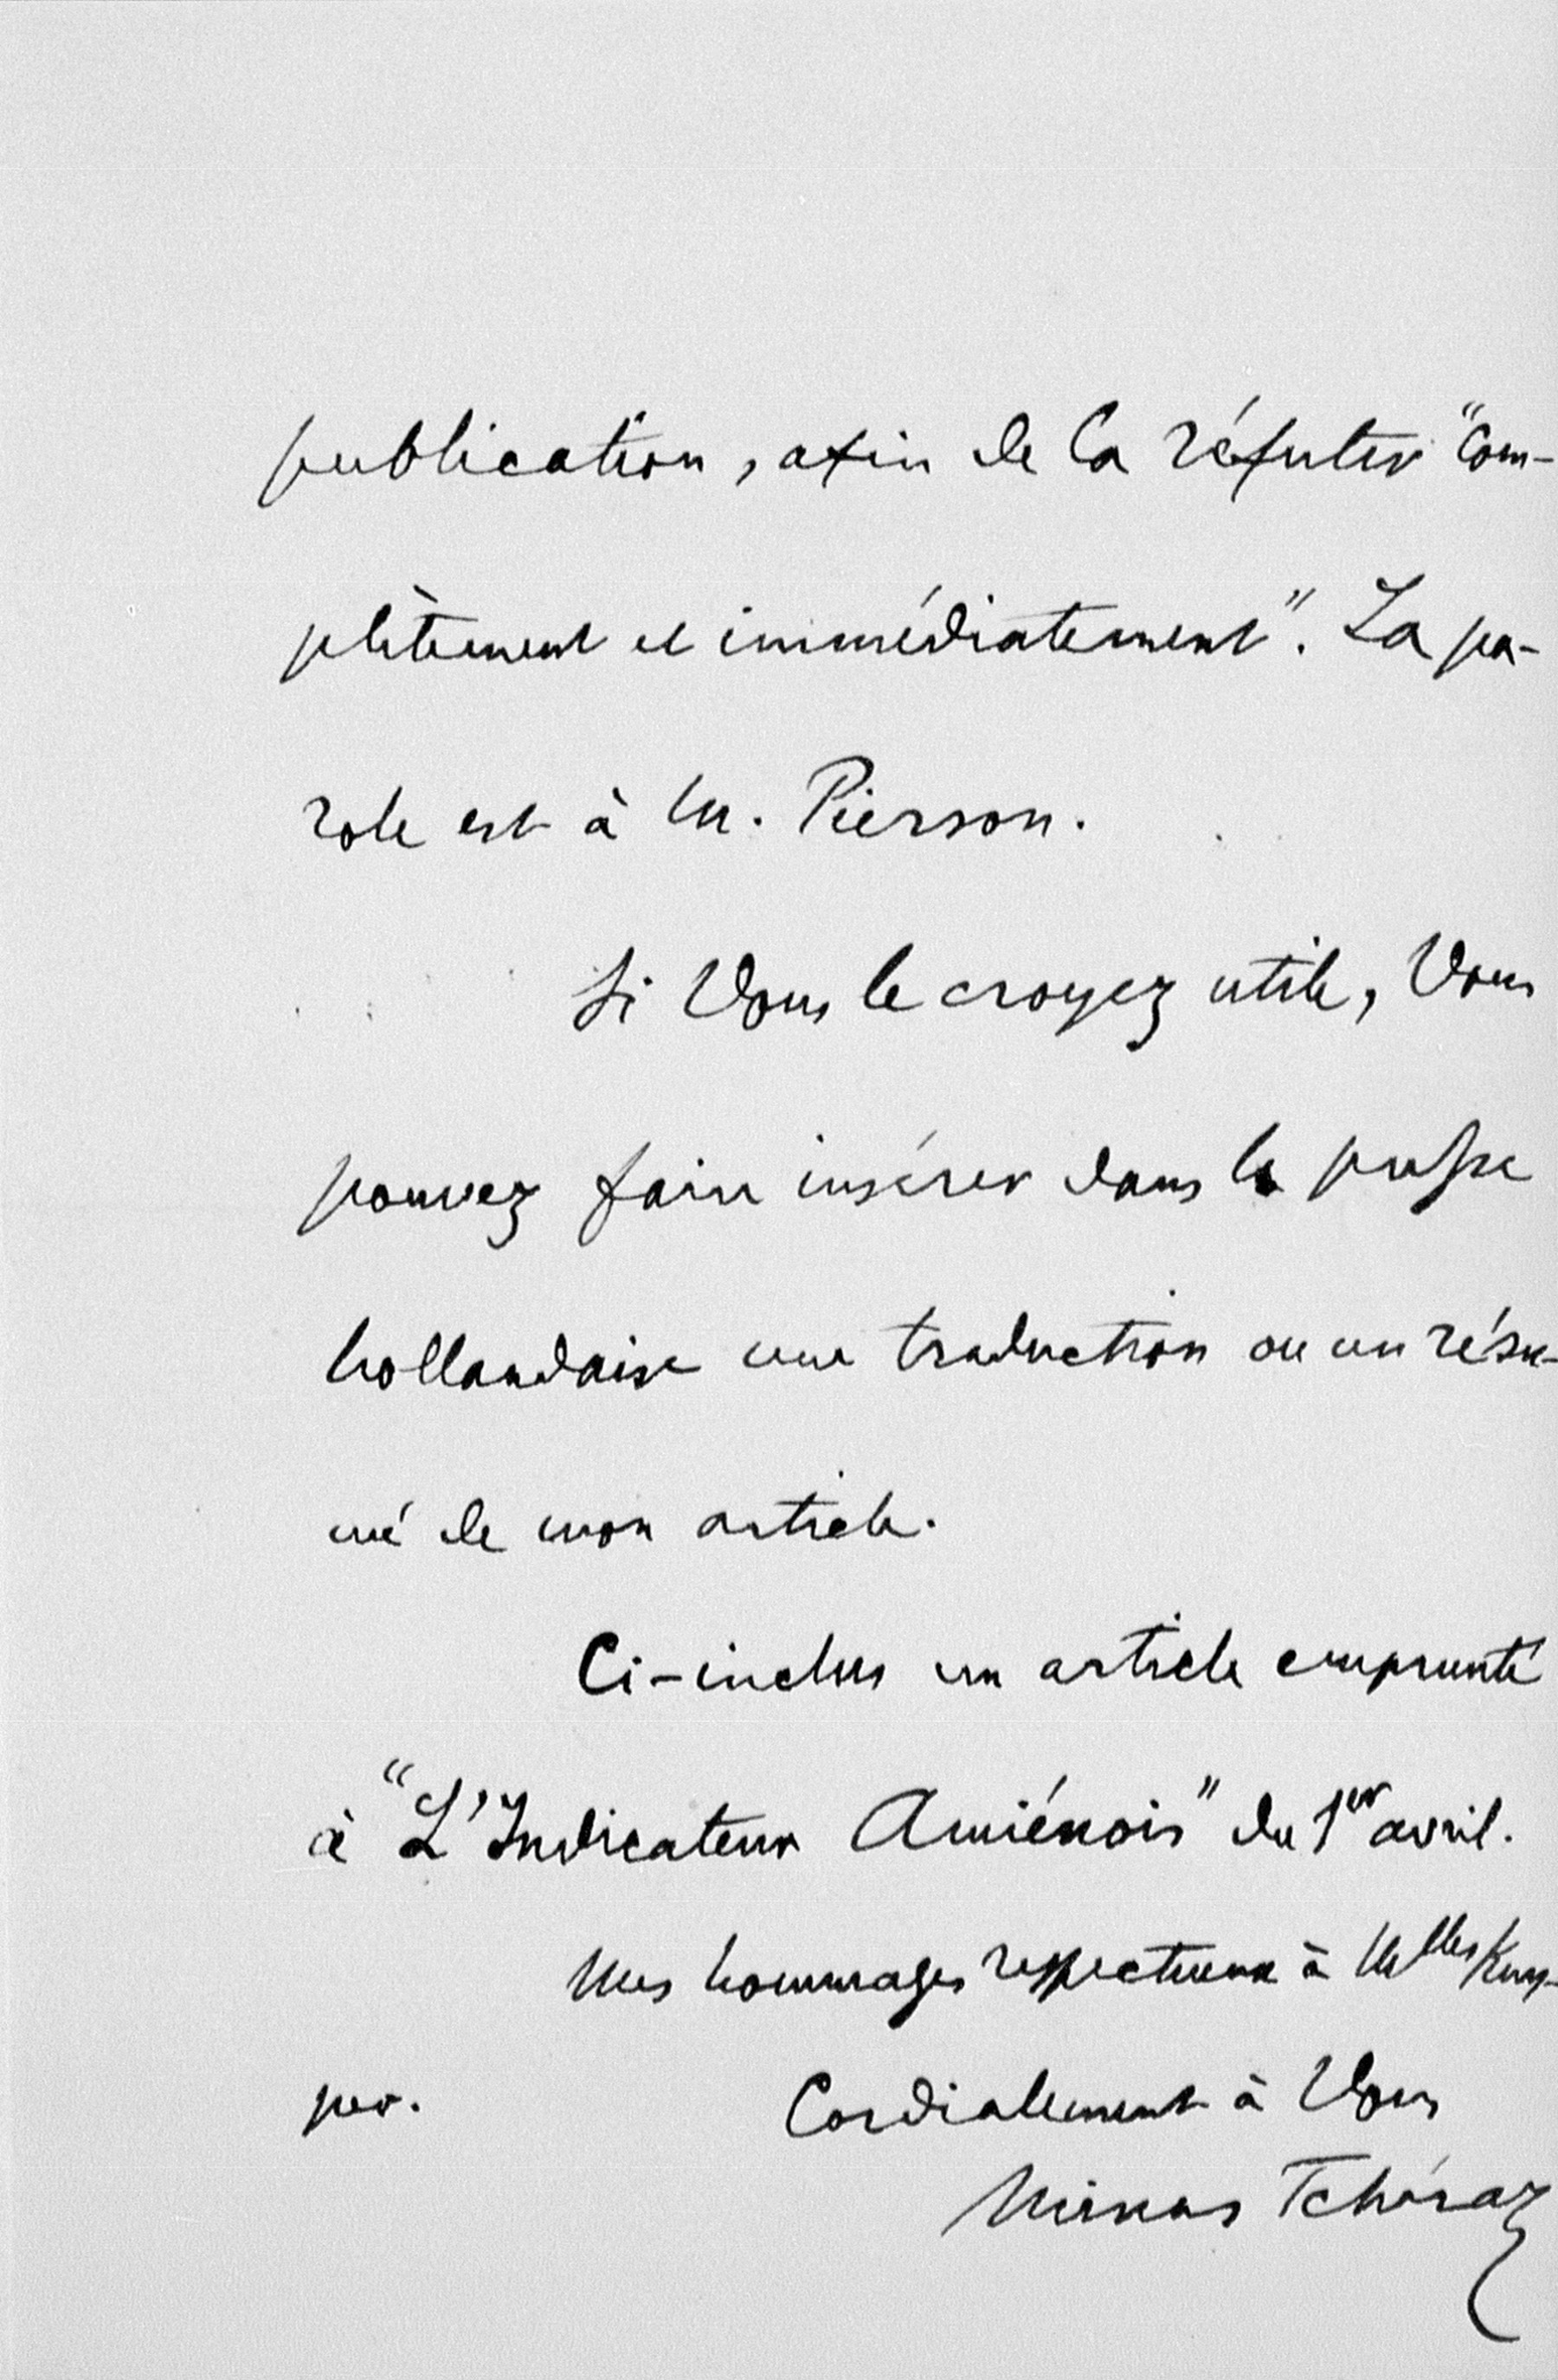 publication, afin de la réfuter "com-
plètement et immédiatement". La pa-
role est à M. Pierson.
Si Vous le croyez utile, Vous
pouvez faire insérer dans la presse
hollandaise une traduction ou un résu-
mé de mon article.
Ci-inclus un article emprunté
à "L'Indicateur Amiénois" du 1er avril.
Mes hommages respectueux à Melles Kuy-
per.
Cordialement à Vous
Minas Tchéraz